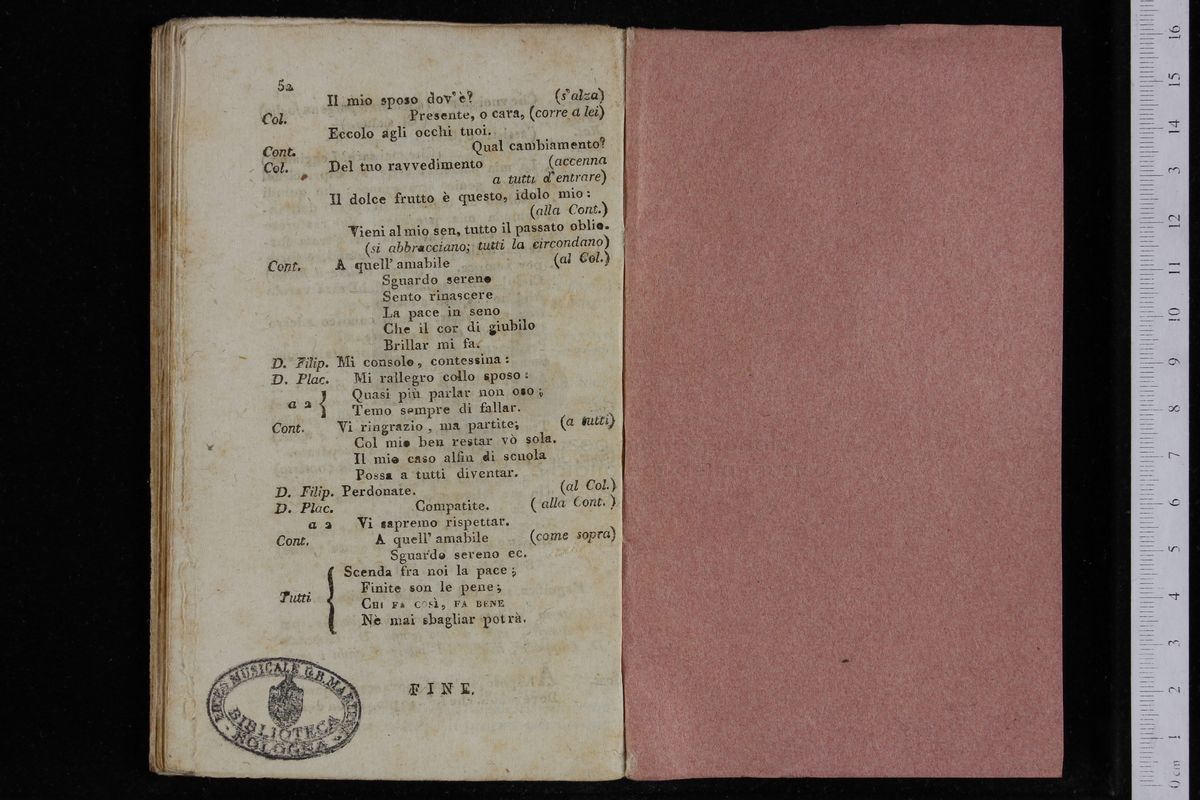 52
Il mio sposo dov'è? (s'alza)
Col. Presente, o cara, (corre a lei)
Eccolo agli occhi tuoi.
Cont. Qual cambiamento?
Col. Del tuo ravvedimento (accenna
a tutti d'entrare)
Il dolce frutto è questo, idolo mio:
(alla Cont.)
Vieni al mio sen, tutto il passato oblio.
(si abbracciano; tutti la circondano)
Cont. A quell' amabile (al Col.)
Sguardo sereno
Sento rinascere
La pace in seno
Che il cor di giubilo
Brillar mi fa.
D. Filip. Mi consolo, contessina:
D. Plac. Mi rallegro collo sposo:
a 2 { Quasi più parlar non oso;
Temo sempre di fallar.
Cont. Vi ringrazio, ma partite; (a tutti)
Col mio ben restar vò sola.
Il mio caso alfin di scuola
Possa a tutti diventar.
D. Filip. Perdonate. (al Col.)
D. Plac. Compatite. (alla Cont.)
a 2 Vi sapremo rispettar.
Cont. A quell' amabile (come sopra)
Sguardo sereno ec.
Tutti { Scenda fra noi la pace;
Finite son le pene;
CHI FA COSÌ, FA BENE
Nè mai sbagliar potrà.
FINE.
MUSICALE G.B. MARTINI
BIBLIOTECA
BOLOGNA
0 cm 1 2 3 4 5 6 7 8 9 10 11 12 13 14 15 16